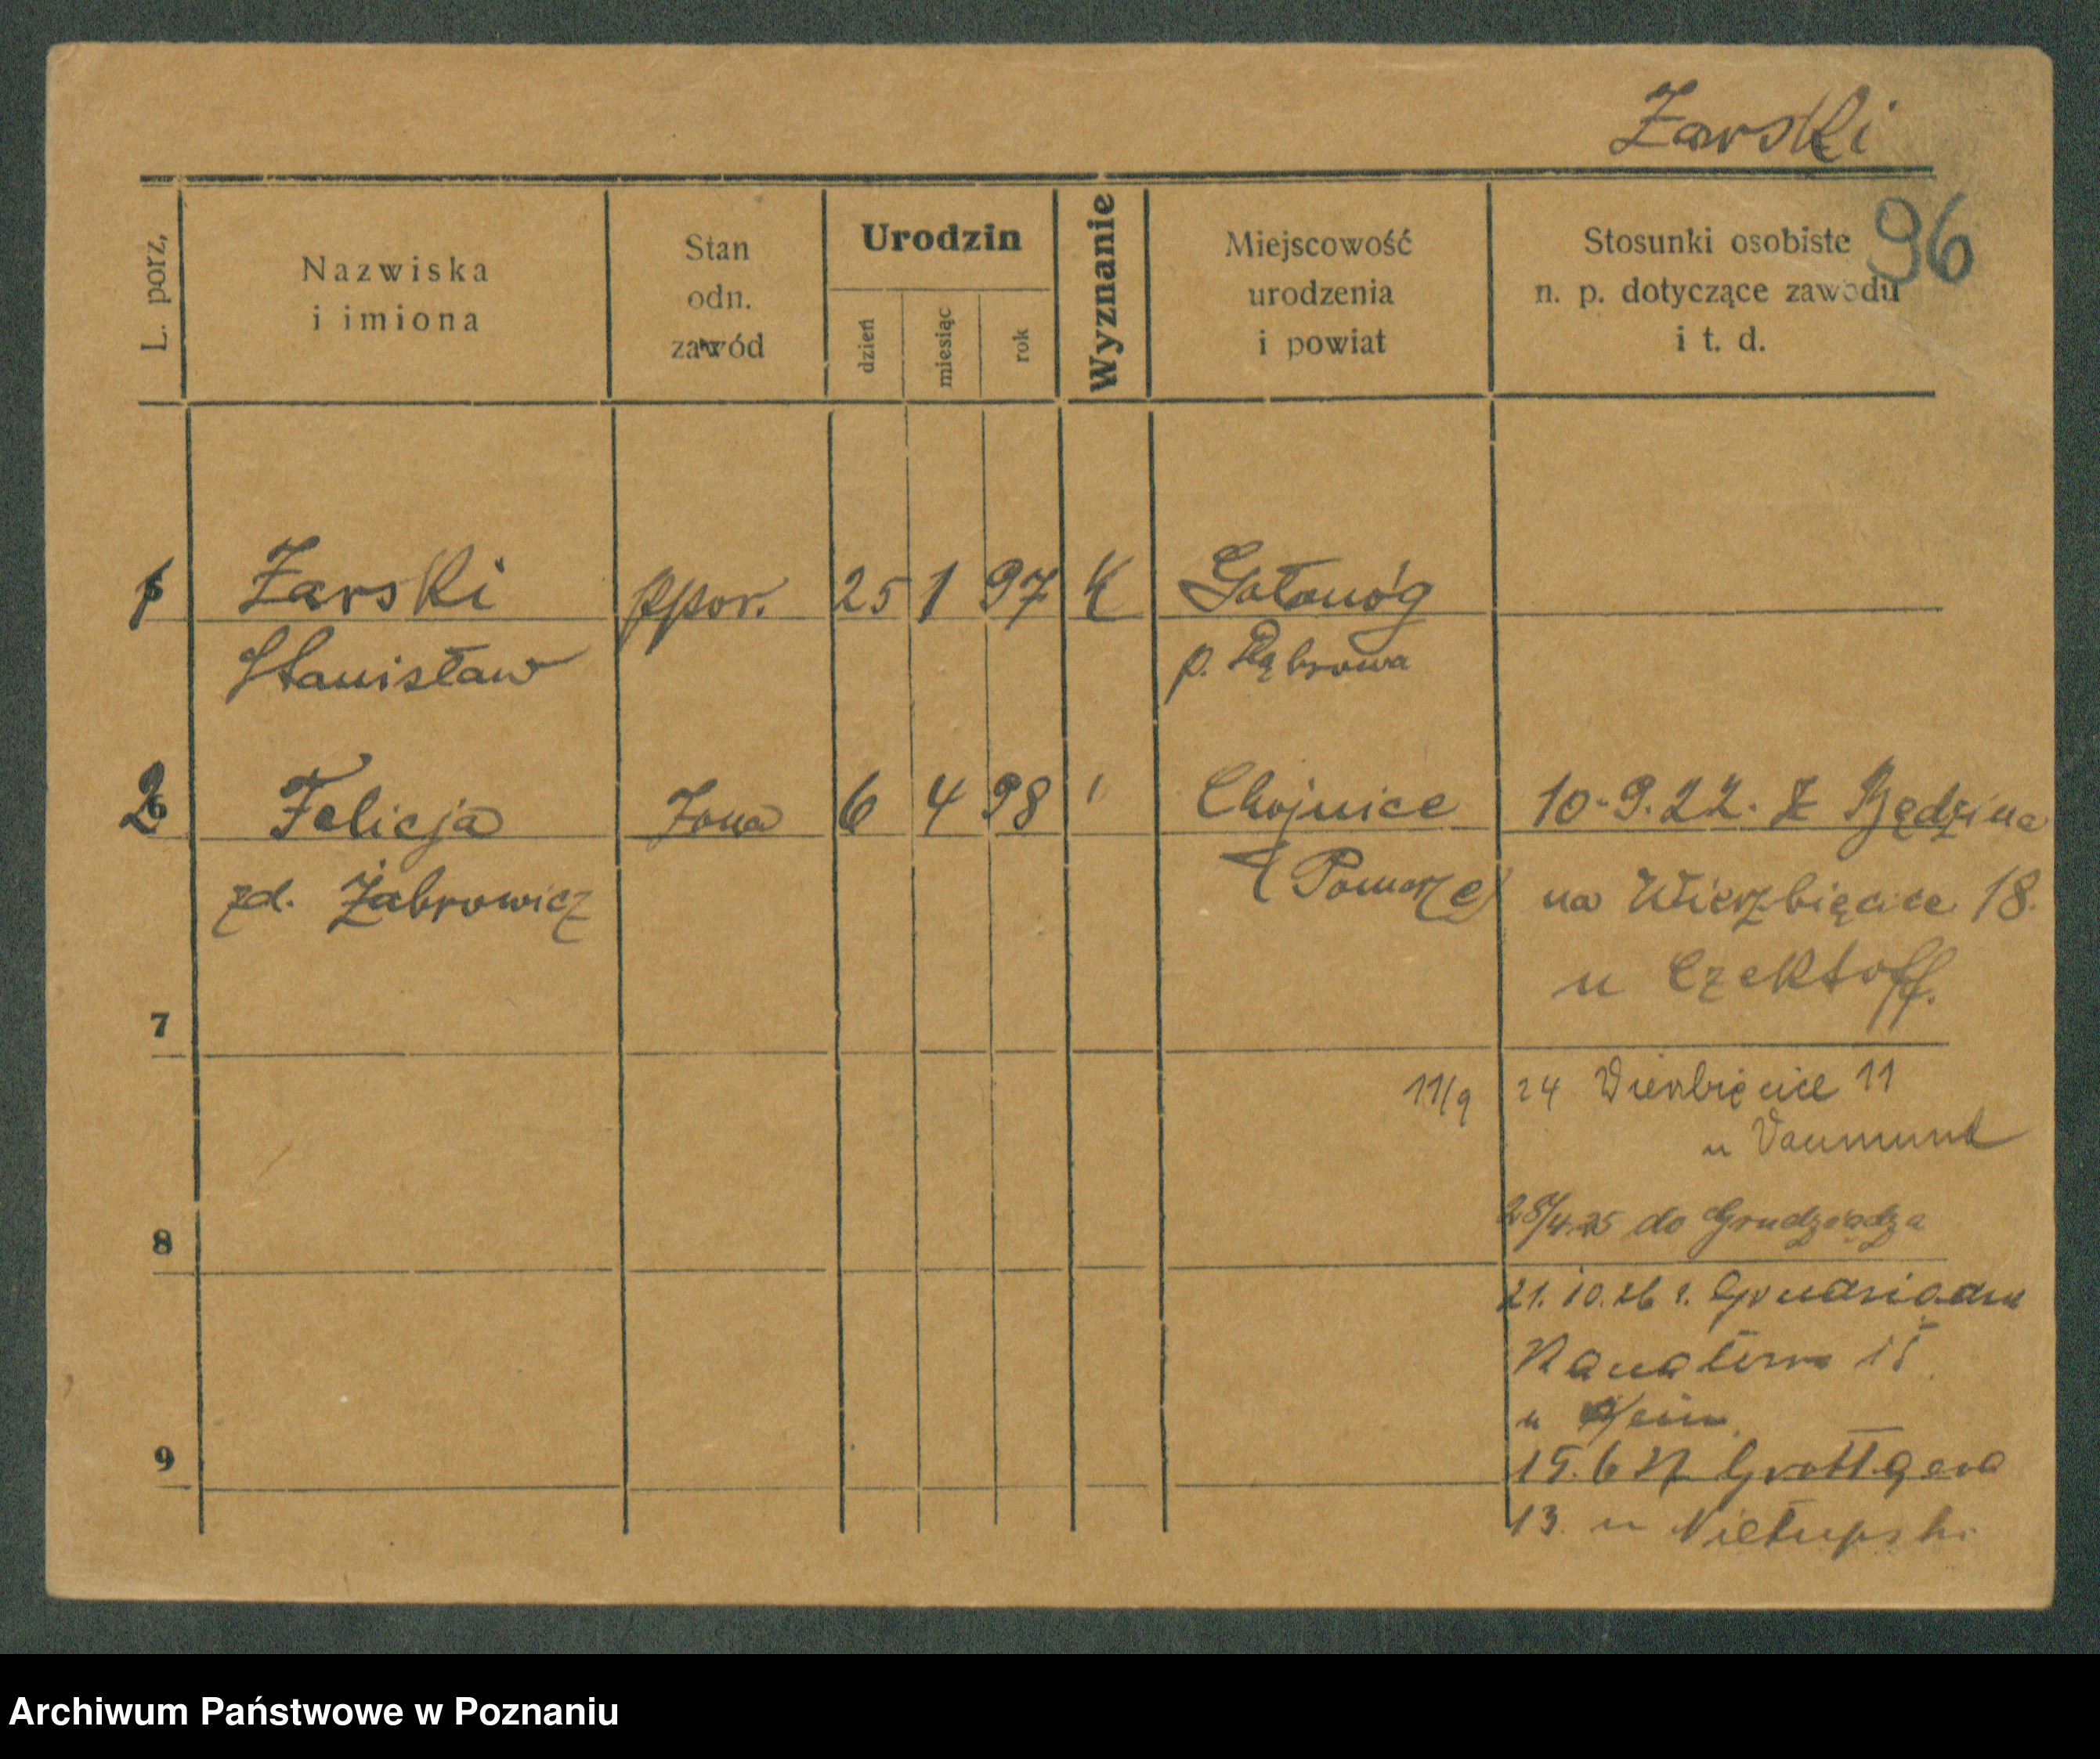 Żarski
96
L. porz,
Nazwiska
i imiona
Stan
odn.
zawód
Urodzin
dzień
miesiąc
rok
Wyznanie
Miejscowość
urodzenia
i powiat
Stosunki osobiste
n. p. dotyczące zawodu
i t. d.
1 Żarski ppor. 25 1 97 K Gołonóg
Stanisław p. Dąbrowa
2 Felicja żona 6 4 98 Chojnice 10.9.22. Z Będzina
zd. Żabrowicz (Pomorze) na Wierzbięcice 18.
u
7
11/9 24 Wierzbięcice 11
u
28/4 25 do Grudziądza
8
21.10.26 z
15
u
9
15.6 27 Grottgera
13. u
Archiwum Państwowe w Poznaniu